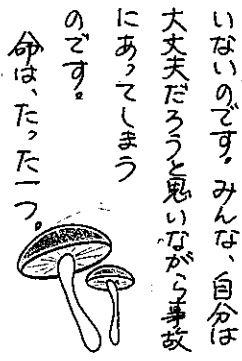 いないのです。みんな、自分は
大丈夫だろうと思いながら事故
にあってしまう
のです。
命は、たった一つ。